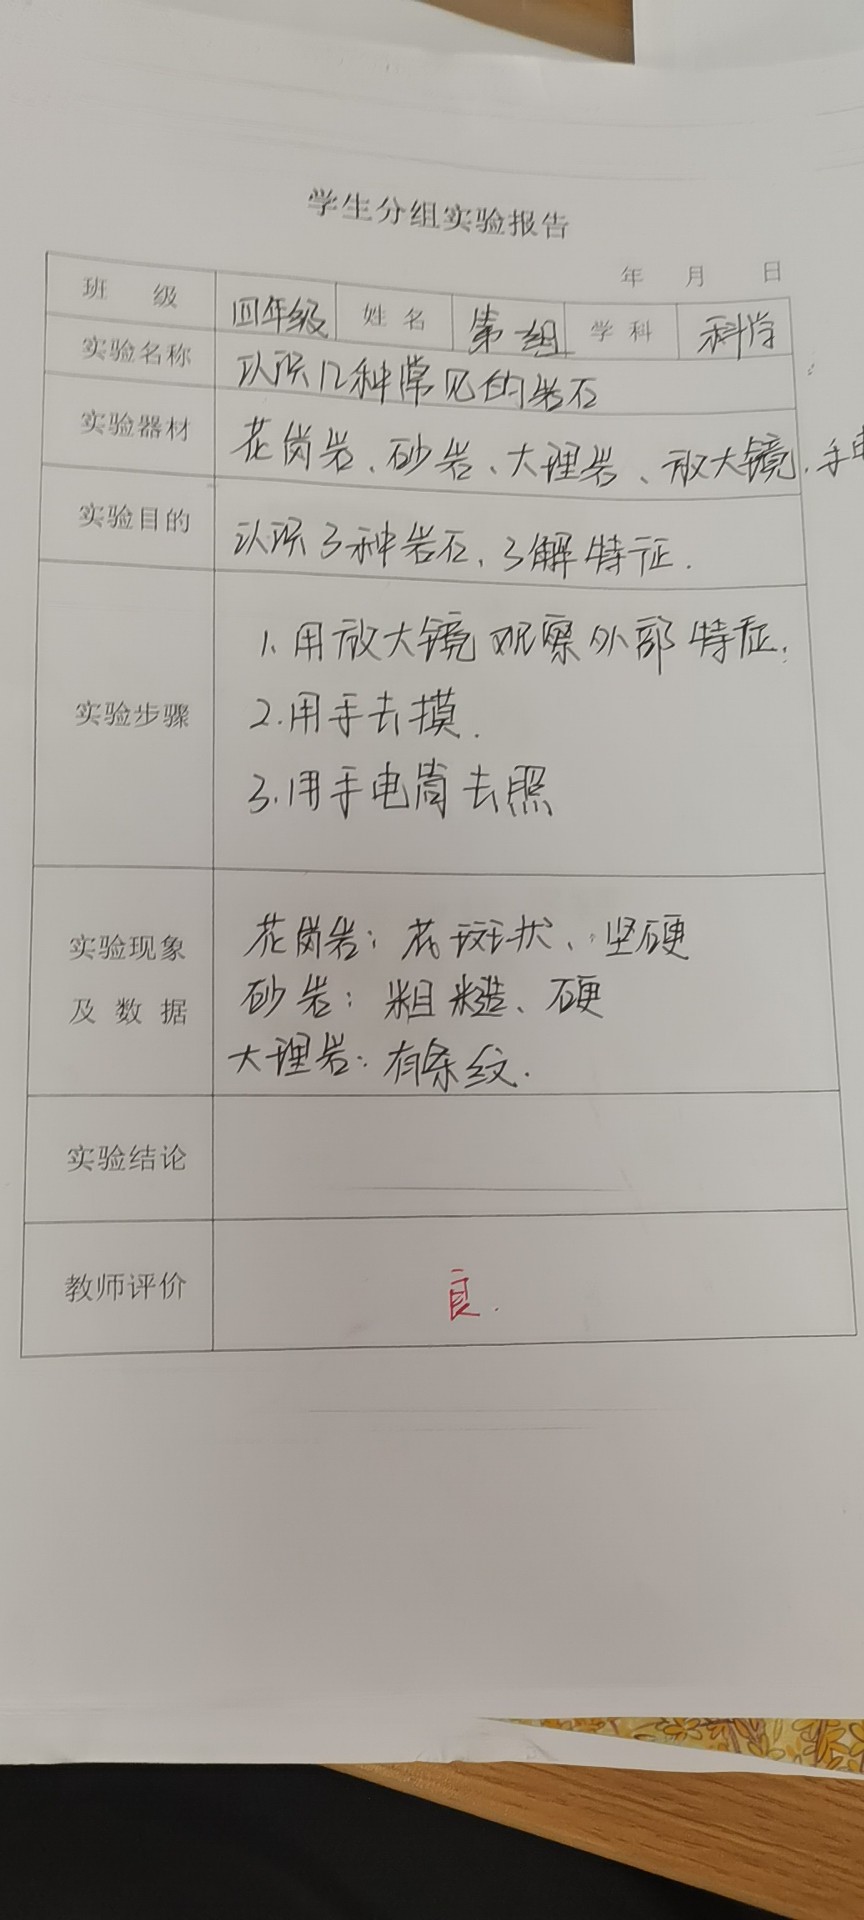 学生分组实验报告
年 月 日
班 级 四年级 姓 名 第一组 学 科 科学
实验名称 认识几种常见的岩石
实验器材 花岗岩、砂岩、大理岩、放大镜、手电
实验目的 认识3种岩石、了解特征.
实验步骤
1.用放大镜观察外部特征;
2.用手去摸.
3.用手电筒去照
实验现象
及 数 据
花岗岩:花斑状、坚硬
砂岩:粗糙、硬
大理岩:有条纹.
实验结论
教师评价 良.